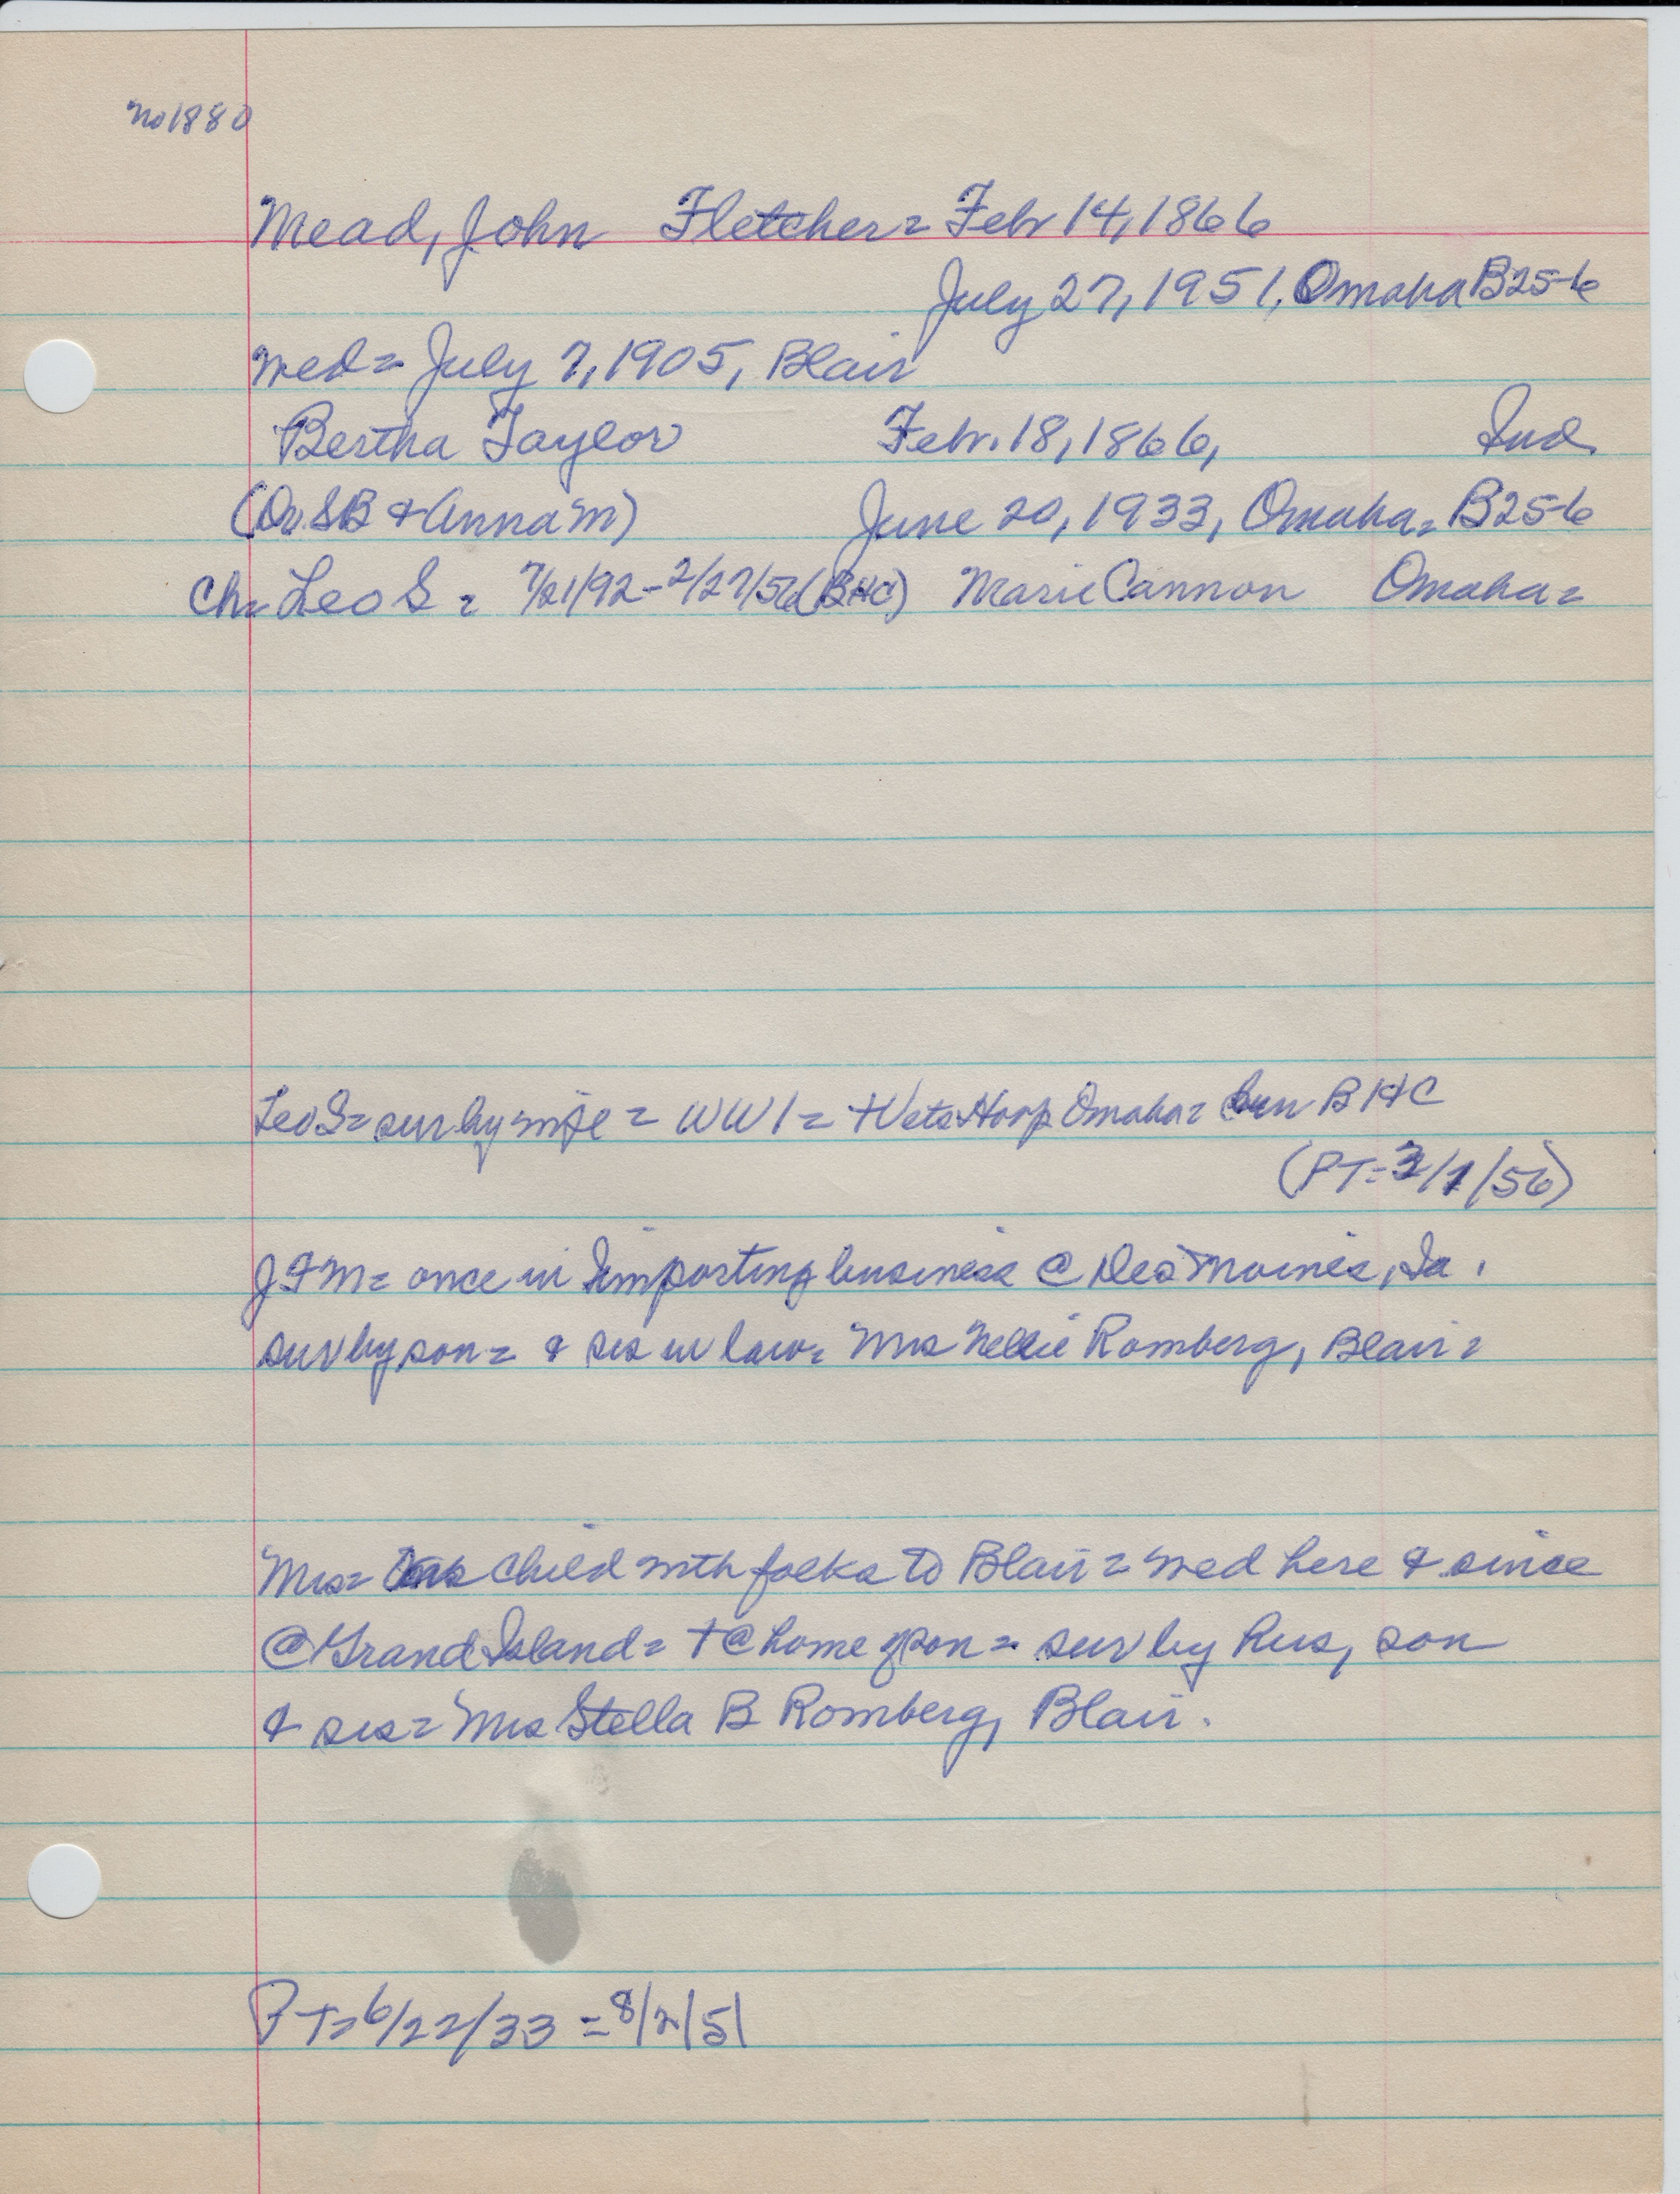 No 1880
Mead, John Fletcher = Feb 14, 1866
July 27, 1951, Omaha B256
Wed = July 7, 1905, Blair
Bertha Taylor Feb. 18, 1866, Ind.
(Dr. SB & Anna M) June 20, 1933, Omaha = B256
Ch = Leo S = 7/21/92 - 2/27/56 (BHC) Marie Cannon Omaha =
Leo S = sur by wife = WW1 = + Vets Hosp Omaha = Bur BHC
(PT = 3/1/56)
JFM = once in Importing business @ Des Moines, Ia.
sur by son = & sis in law = Mrs Nellie Romberg, Blair =
Mrs = child with folks to Blair = wed here & since
@ Grand Island = + @ home of son = sur by hus, son
& sis = Mrs Stella B Romberg, Blair.
PT = 6/22/33 = 8/2/51